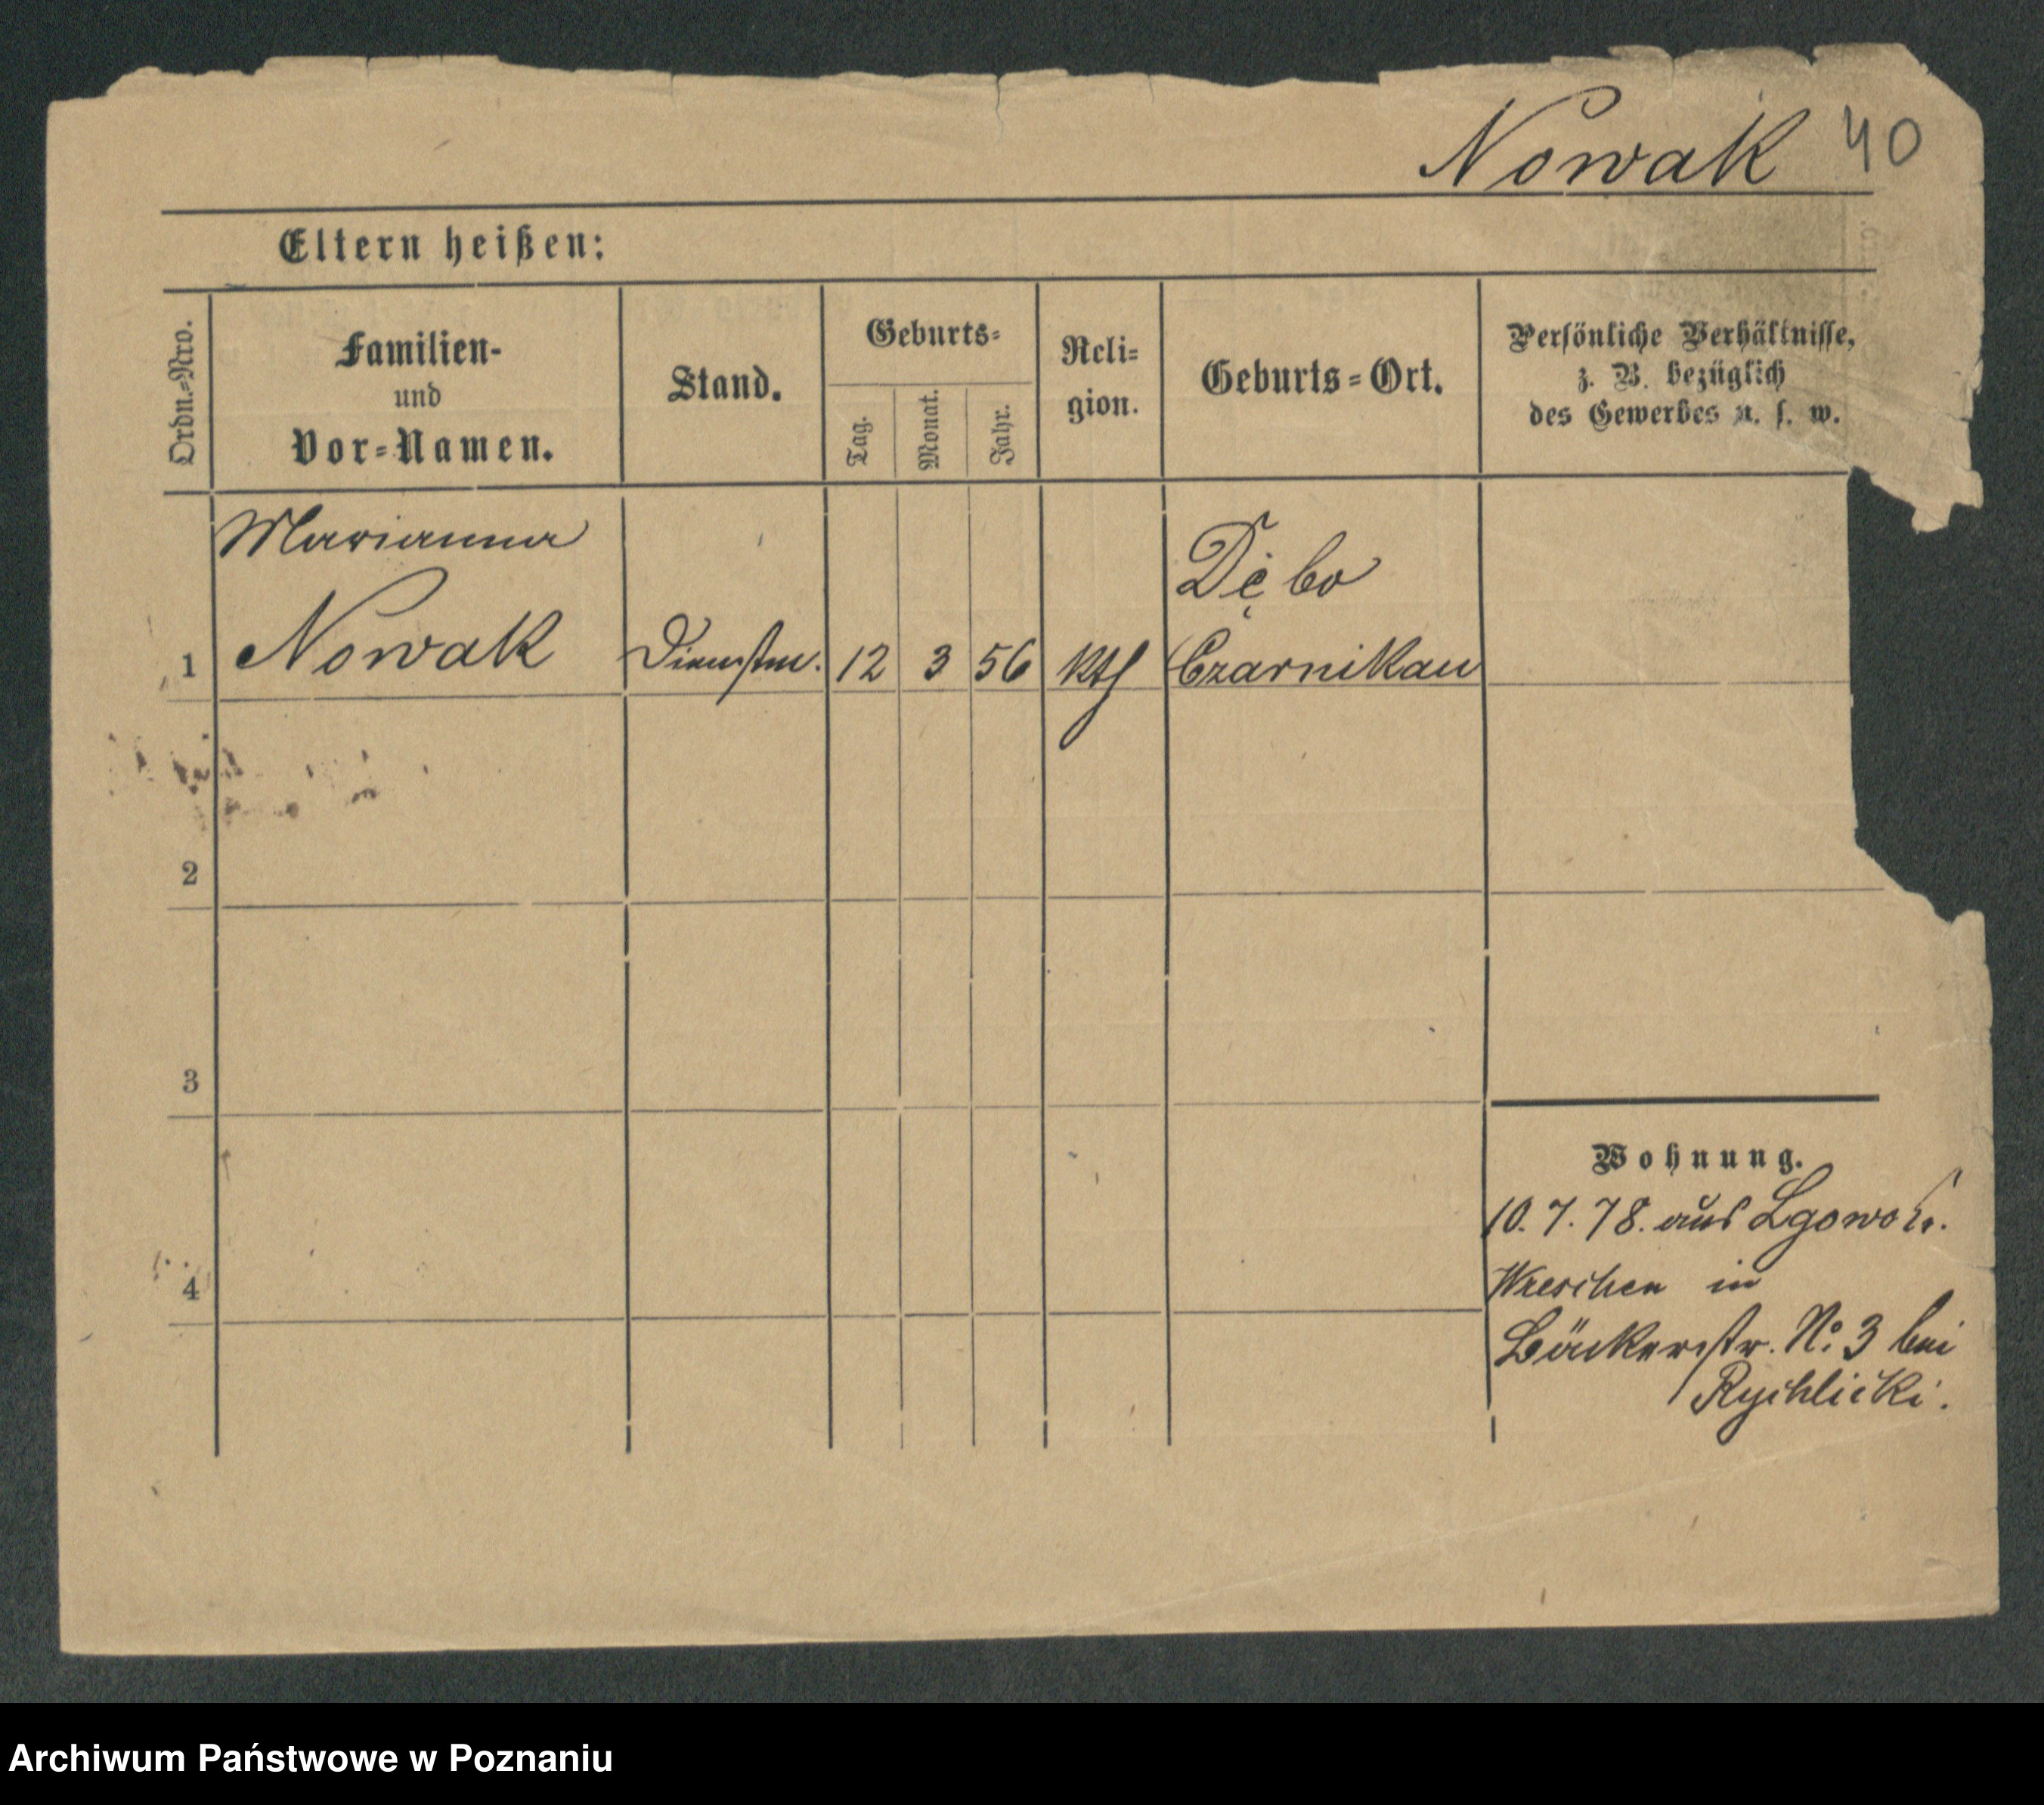 Nowak 40
Eltern heißen:
Ordn.-Nro.
Familien-
und
Vor-Namen.
Stand.
Geburts-
Tag.
Monat.
Jahr.
Reli-
gion.
Geburts-Ort.
Persönliche Verhältnisse,
z. B. bezüglich
des Gewerbes u. s. w.
Marianna
Dębo
1 Nowak Dienstm. 12 3 56 kth Czarnikau
2
3
Wohnung.
10. 7. 78. aus Lgowo
4
Wreschen in
Bäckerstr. No. 3 bei
Rychlicki.
Archiwum Państwowe w Poznaniu